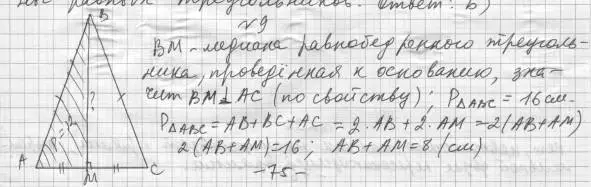 ные равных треугольников. Ответ: б)
№9
B
BM - медиана равнобедренного треуголь-
ника, проведённая к основанию, зна-
чит BM⊥AC (по свойству); P△ABC = 16 см.
P△ABC = AB+BC+AC = 2·AB+2·AM=2(AB+AM)
2(AB+AM)=16; AB+AM=8 (см)
?
P=12
A
M
C
-75-